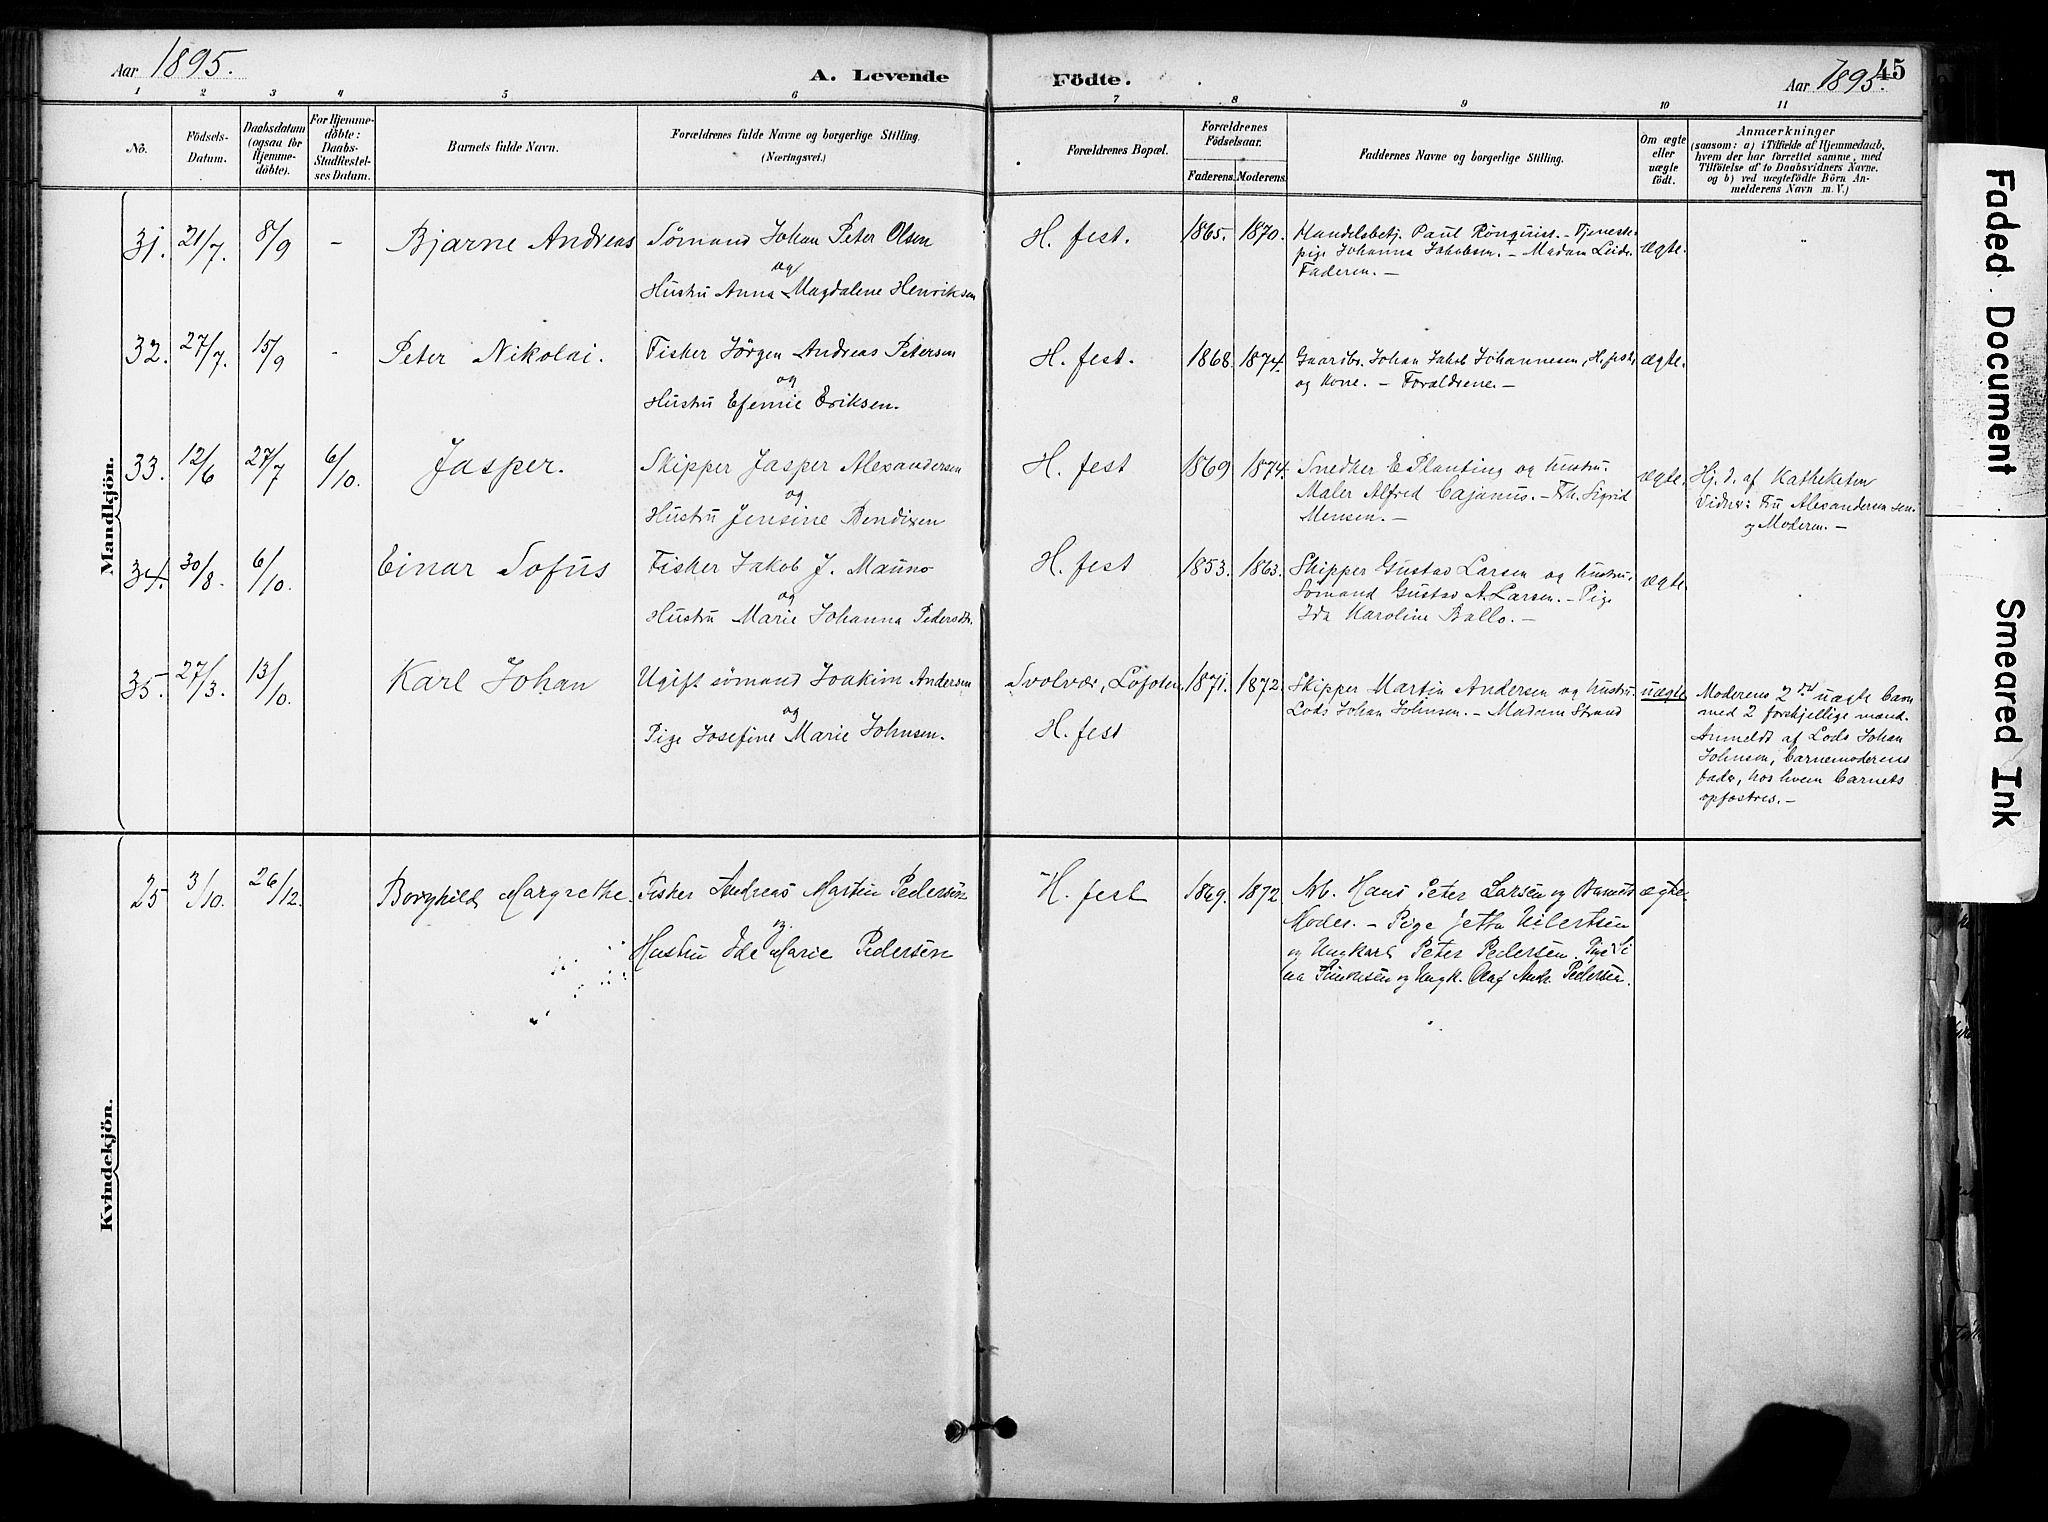 Aar 1895.
A. Levende
Födte.
Aar 1895.
45
1 2 3 4 5 6 7 8 9 10 11
No.
Födsels-
Datum.
Daabsdatum
(ogsaa for
Hjemme-
döbte).
For Hjemme-
döbte:
Daabs-
Stadfæstel-
ses Datum.
Barnets fulde Navn.
Forældrenes fulde Navne og borgerlige Stilling.
(Næringsvei.)
Forældrenes Bopæl.
Forældrenes
Födselsaar.
Faderens. Moderens.
Faddernes Navne og borgerlige Stilling.
Om ægte
eller
uægte
födt.
Anmærkninger
(saasom: a) i Tilfælde af Hjemmedaab,
hvem der har forrettet samme, med
Tilföielse af to Daabsvidners Navne.
og b) ved uægtefödte Börn An-
melderens Navn m. V.)
Mandkjön.
31. 21/7. 8/9 - Bjarne Andreas
Sømand Johan Peter Olsen
og
Hustru Anna Magdalene Henriksen
H. fest. 1865. 1870.
Handelsbetj. Paul Rönquist. - Tjeneste-
pige Johanna Jakobsen. - Madam
Faderen. -
ægte.
32. 27/7. 15/9 - Peter Nikolai.
Fisker Jørgen Andreas Petersen
og
Hustru Efemie Eriksen.
H. fest. 1868. 1874.
Gaardbr. Johan Jakob Johannesen, H. fest,
og Kone. - Forældrene. -
ægte.
33. 12/6 27/7 6/10. Jasper.
Skipper Jasper Alexandersen
og
Hustru Jensine Bendixen
H. fest 1869 1874.
Snedker E Planting og hustru.
Maler Alfred Cajanus. - Frk. Sigrid
Mensen. -
ægte.
Hj. d. af Katheketen
Vidner: Fru Alexandersen sen.
og Moderen. -
34. 30/8. 6/10. Einar Sofus
Fisker Jakob J. Mauno
og
Hustru Marie Johanna Pedersdtr.
H. fest 1853. 1863.
Skipper Gustav Larsen og hustru.
Sømand Gustav A. Larsen. - Pige
Ida Karoline Ballo. -
ægte.
35. 27/3. 13/10 Karl Johan
Ugift sømand Joakim Andersen
og
Pige Josefine Marie Johnsen.
Svolvær, Lofoten,
H. fest
1871. 1872.
Skipper Martin Andersen og hustru.
Lods Johan Johnsen. - Madam Strand
uægte
Moderens 2det uægte barn
med 2 forskjellige mænd.
Anmeldt af Lods Johan
Johnsen, barnemoderens
fader, hos hvem barnets
opfostres. -
Kvindekjön.
25 3/10. 26/12. Borghild Margrethe.
Fisker Andreas Martin Pedersen
og
Hustru Ide Marie Pedersen
H. fest 1869. 1872
Arb. Hans Peter Larsen og Barnets
Moder. - Pige Jetta Eilertsen
og Ungkarl Peter Pedersen.
Simonsen og Ungk. Olaf Andr. Pedersen.
ægte.
Faded Document
Smeared Ink